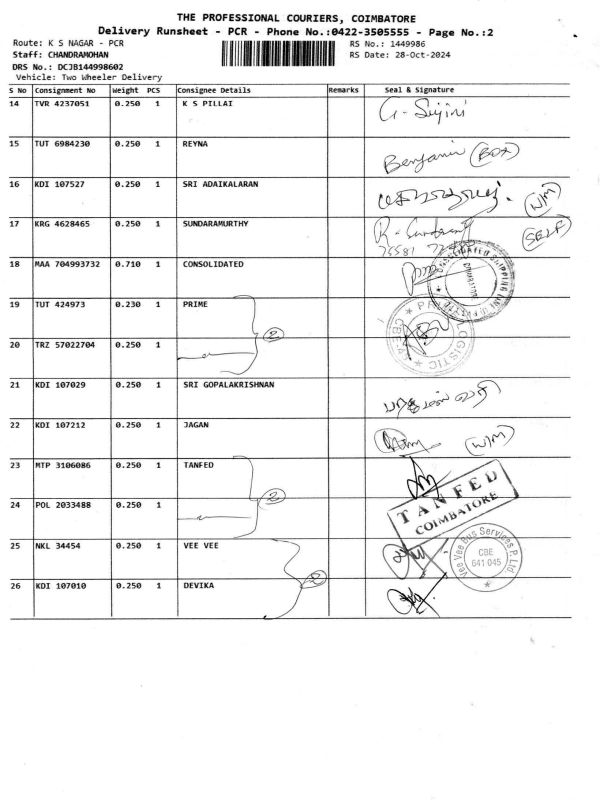 THE PROFESSIONAL COURIERS, COIMBATORE
Delivery Runsheet - PCR - Phone No.:0422-3505555 - Page No.:2
Route: K S NAGAR - PCR
RS No.: 1449986
Staff: CHANDRAMOHAN
RS Date: 28-Oct-2024
DRS No.: DCJB144998602
Vehicle: Two Wheeler Delivery
S No Consignment No Weight PCS Consignee Details Remarks Seal & Signature
14 TVR 4237051 0.250 1 K S PILLAI
15 TUT 6984230 0.250 1 REYNA Benjamin (BOX)
16 KDI 107527 0.250 1 SRI ADAIKALARAN (W/M)
17 KRG 4628465 0.250 1 SUNDARAMURTHY (SELF)
18 MAA 704993732 0.710 1 CONSOLIDATED
19 TUT 424973 0.230 1 PRIME 2
20 TRZ 57022704 0.250 1
21 KDI 107029 0.250 1 SRI GOPALAKRISHNAN
22 KDI 107212 0.250 1 JAGAN (W/M)
23 MTP 3106086 0.250 1 TANFED 2
TANFED
COIMBATORE
24 POL 2033488 0.250 1
25 NKL 34454 0.250 1 VEE VEE 2
Vee Vee Bus Services P. Ltd
CBE
641 045
26 KDI 107010 0.250 1 DEVIKA